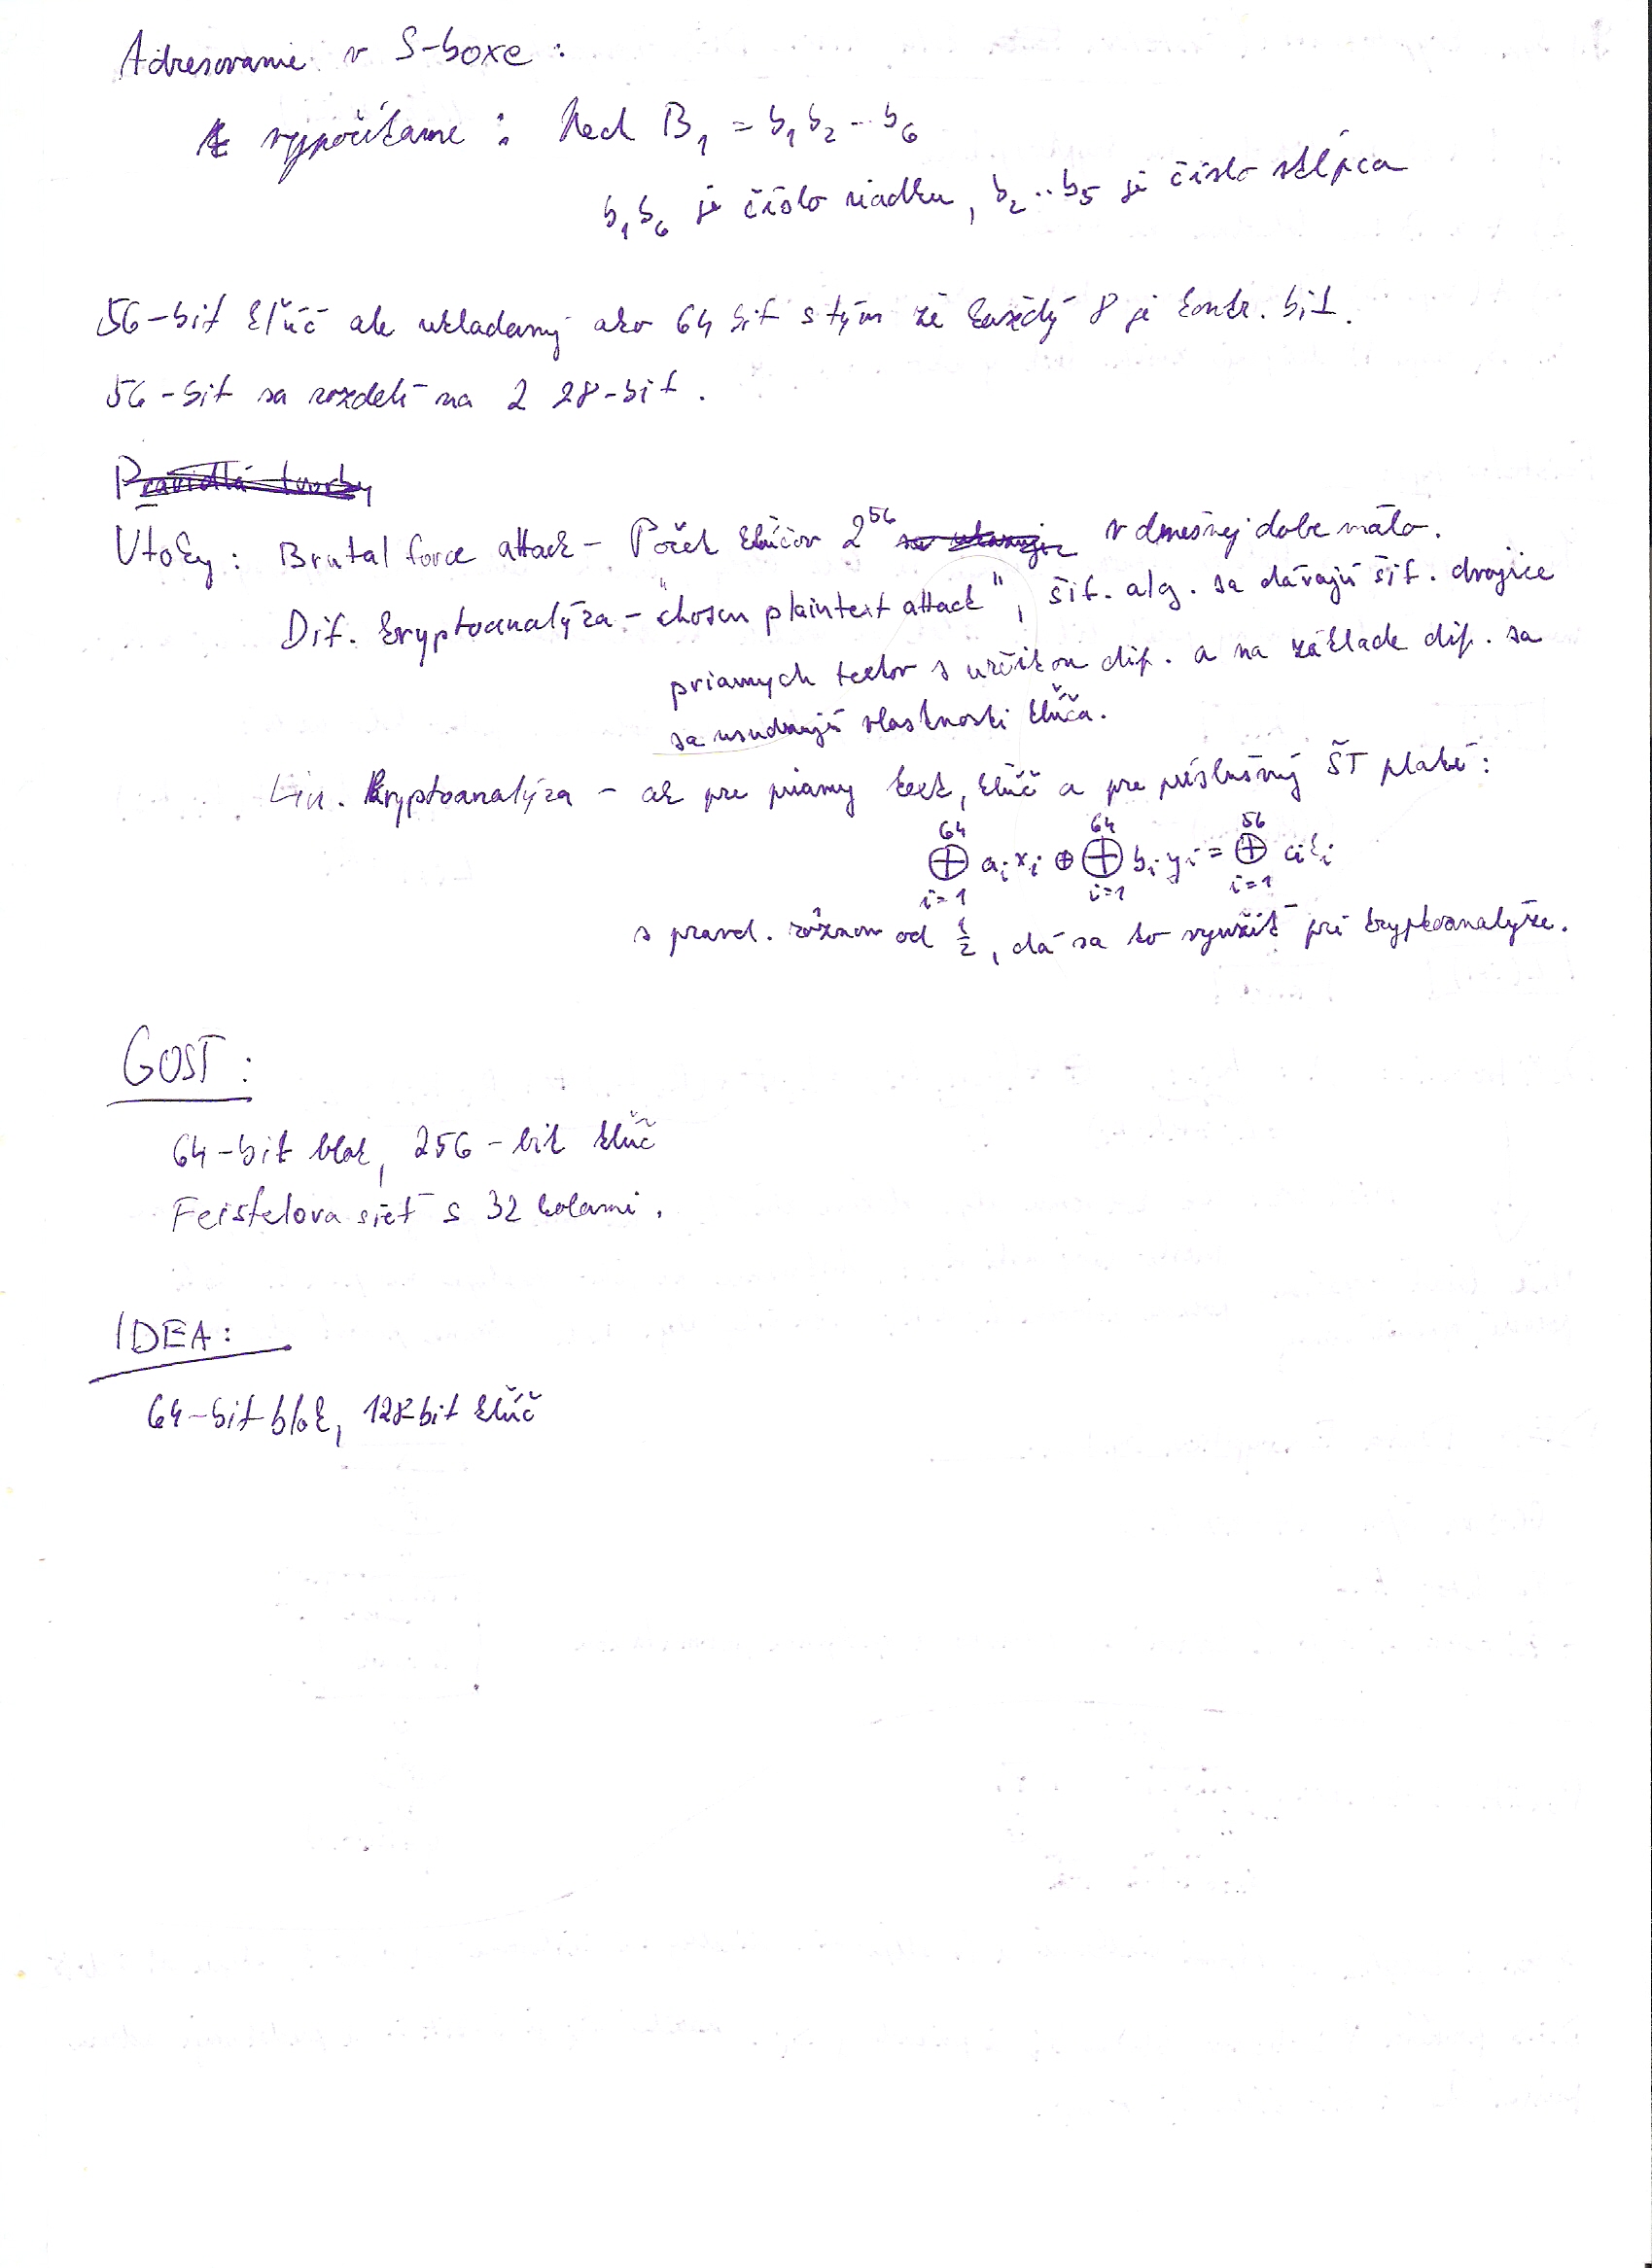 Adresovanie v S-boxe :
vypočítame : Nech B₁ = b₁b₂...b₆
b₁b₆ je číslo riadku, b₂..b₅ je číslo stĺpca
56-bit kľúč ale ukladaný ako 64 bit s tým že každý 8 je kontr. bit.
56-bit sa rozdelí na 2 28-bit.
Pravidlá tvorby
Utoky : Brutal force attack - Počet kľúčov 2⁵⁶ v dnešnej dobe málo.
Dif. kryptoanalýza - "chosen plaintext attack", šif. alg. sa dávajú šif. dvojice
priamych textov s určitou dif. a na základe dif. sa
sa usudzujú vlastnosti kľúča.
Lin. kryptoanalýza - ak pre priamy text, kľúč a pre príslušný ŠT platí :
64 64 56
⊕ aᵢxᵢ ⊕ ⊕ bᵢyᵢ = ⊕ cᵢkᵢ
i=1 i=1 i=1
s pravd. rôznou od 1/2, dá sa to využiť pri kryptoanalýze.
GOST :
64-bit blok, 256-bit kľúč
Feistelova sieť s 32 kolami.
IDEA :
64-bit blok, 128-bit kľúč